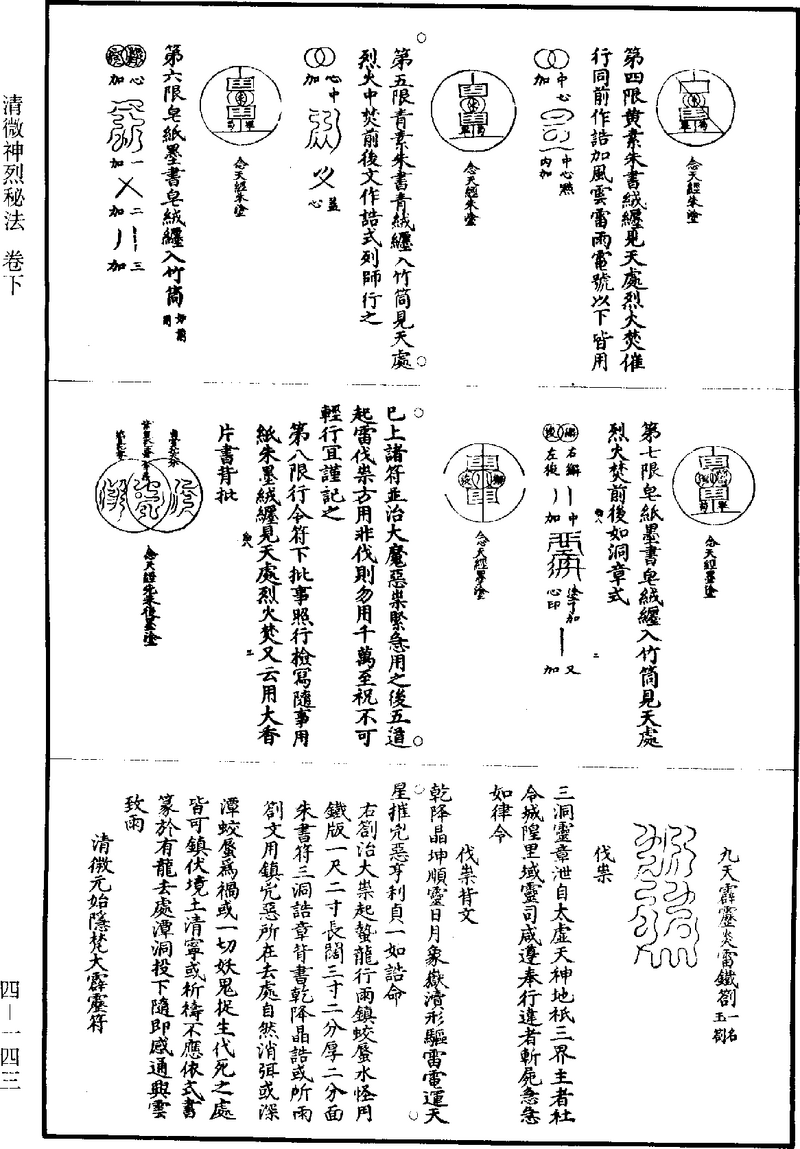 清微神烈秘法 卷下
四—一四三
念天經朱塗
第四限黃素朱書絨纏見天處烈火焚催
行同前作誥加風雲雷雨電號以下皆用
中心
加
中心點
內加
念天經朱塗
第五限青素朱書青絨纏入竹筒見天處
烈火中焚前後文作誥式列師行之
心中
加
蓋
心
念天經朱塗
第六限皂紙墨書皂絨纏入竹筒
心
加
一
加
二
加
三
加
念天經墨塗
第七限皂紙墨書皂絨纏入竹筒見天處
烈火焚前後如洞章式
右
左後
中
加
心印
又
加
念天經墨塗
已上諸符並治大魔惡祟緊急用之後五道
起雷伐祟方用非伐則勿用千萬至祝不可
輕行宜謹記之
第八限行令符下批事照行檢寫隨事用
紙朱墨絨纏見天處烈火焚又云用大香
片書背批
念天經先朱後墨塗
九天霹靂炎雷鐵劄一名玉劄
伐祟
三洞靈章泄自太虛天神地祇三界主者社
令城隍里域靈司咸遵奉行違者斬屍急急
如律令
伐祟背文
乾降晶坤順靈日月象嶽瀆形驅雷電運天
星摧兇惡亨利貞一如誥命
右劄治大祟起蟄龍行雨鎮蛟蜃水怪用
鐵版一尺二寸長闊三寸二分厚二分面
朱書符三洞誥章背書乾降晶誥或所雨
劄文用鎮兇惡所在去處自然消弭或深
潭蛟蜃為禍或一切妖鬼捉生代死之處
皆可鎮伏境土清寧或祈禱不應依式書
篆於有龍去處潭洞投下隨即感通興雲
致雨
清微元始隱梵大霹靂符